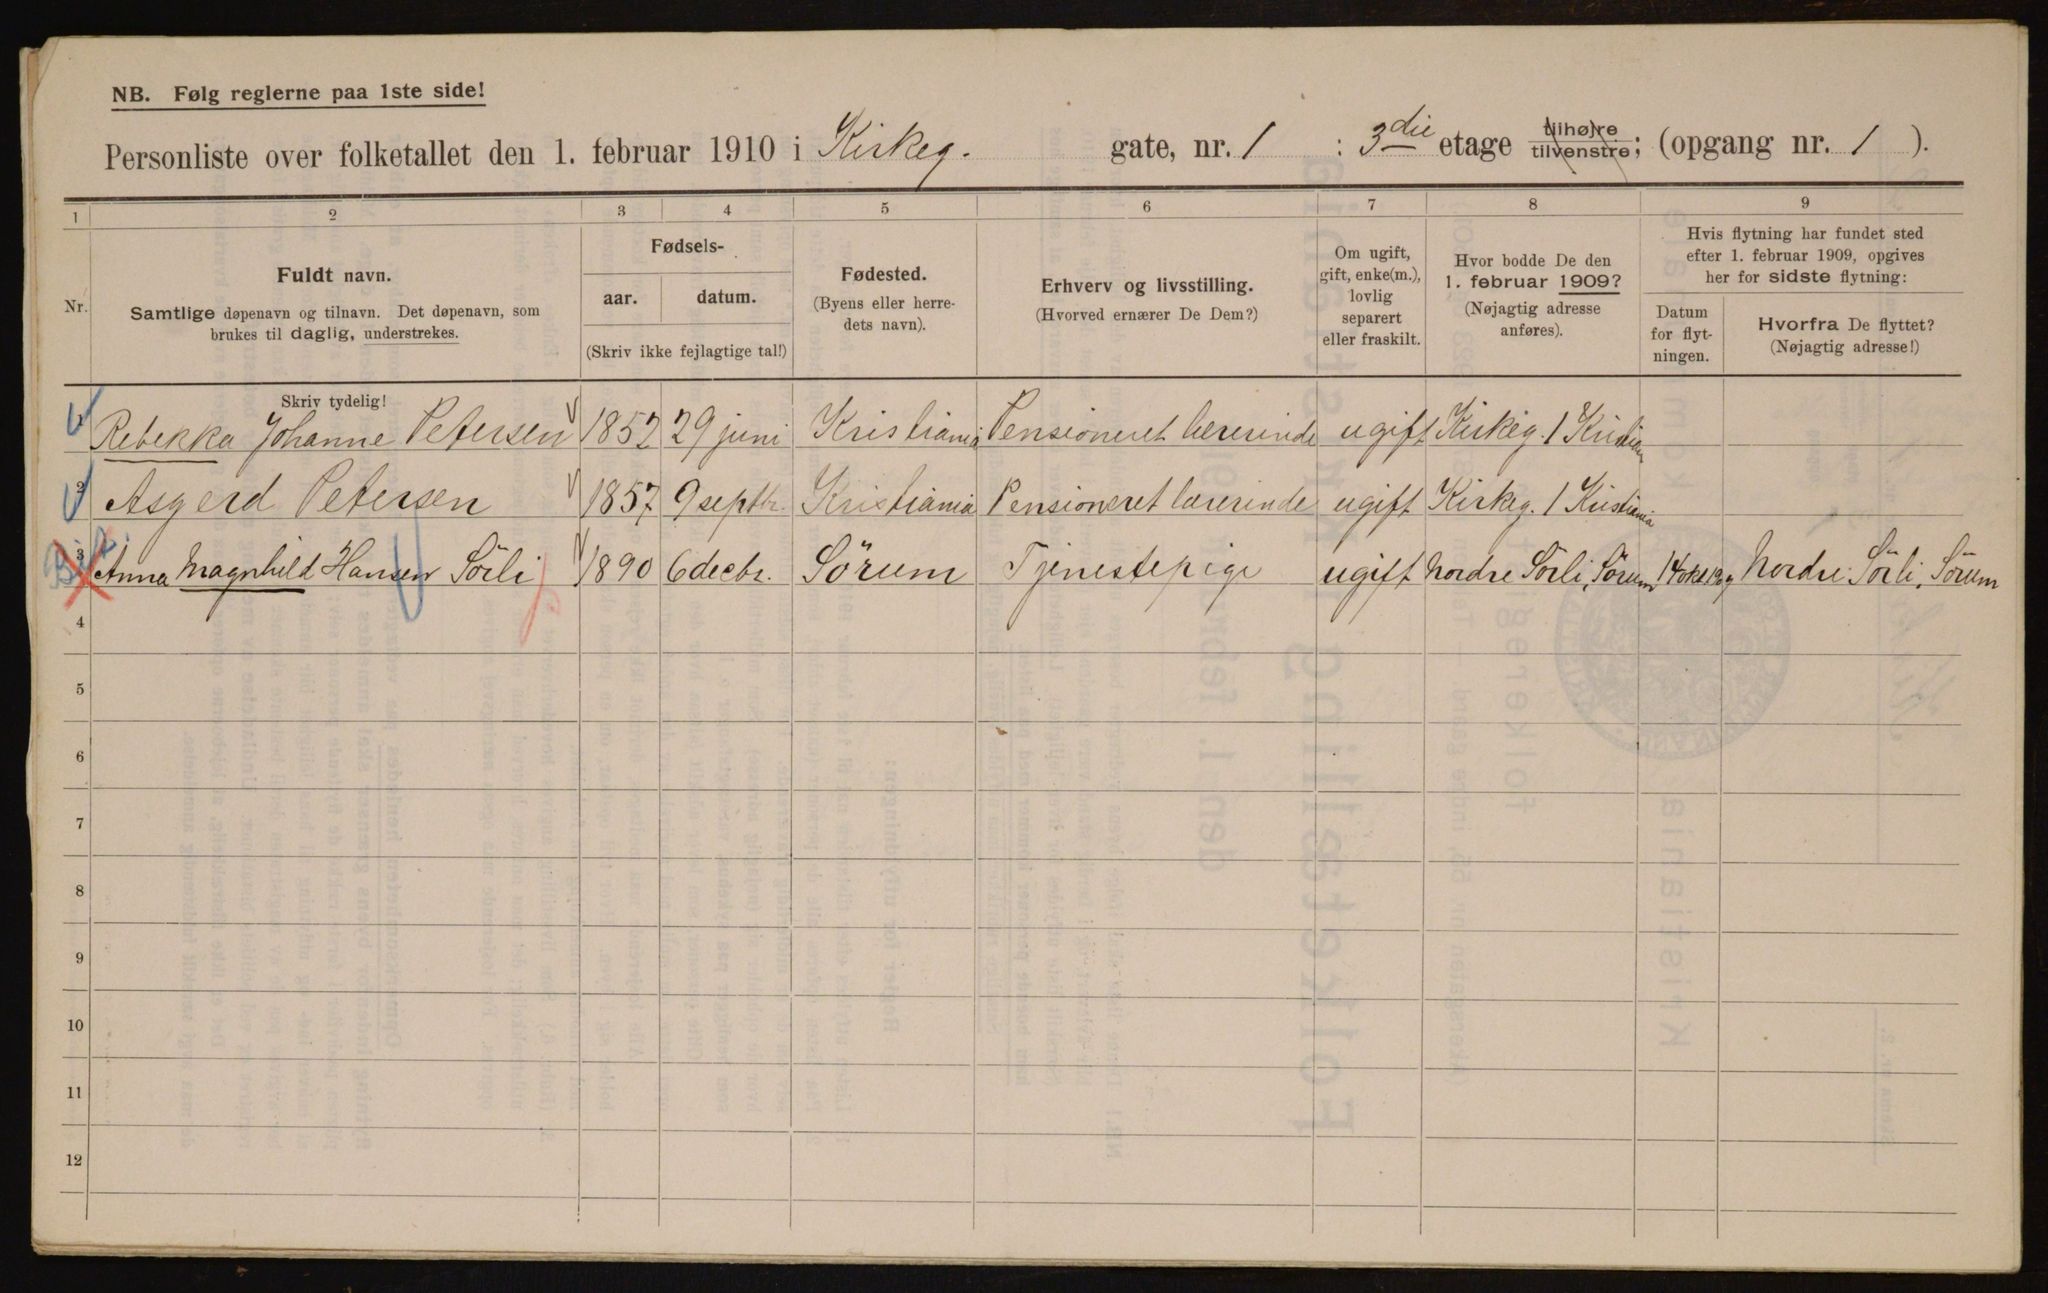 NB. Følg reglerne paa 1ste side!
Personliste over folketallet den 1. februar 1910 i Kirkeg. gate, nr. 1 : 3die etage tilhøjre tilvenstre; (opgang nr. 1 ).
1 2 3 4 5 6 7 8 9
Nr.
Fuldt navn.
Samtlige døpenavn og tilnavn. Det døpenavn, som
brukes til daglig, understrekes.
Fødsels-
aar. datum.
(Skriv ikke fejlagtige tal!)
Fødested.
(Byens eller herre-
dets navn).
Erhverv og livsstilling.
(Hvorved ernærer De Dem?)
Om ugift,
gift, enke(m.),
lovlig
separert
eller fraskilt.
Hvor bodde De den
1. februar 1909?
(Nøjagtig adresse
anføres).
Hvis flytning har fundet sted
efter 1. februar 1909, opgives
her for sidste flytning:
Datum
for flyt-
ningen.
Hvorfra De flyttet?
(Nøjagtig adresse!)
Skriv tydelig!
1 Rebekka Johanne Petersen 1852 29 juni Kristiania Pensioneret lærerinde ugift Kirkeg. 1 Kristiania
2 Asgerd Petersen 1857 9 septbr. Kristiania Pensioneret lærerinde ugift Kirkeg. 1 Kristiania
3 Anna Magnhild Hansen Sörli 1890 6 decbr. Sörum Tjenestepige ugift Nordre Sörli, Sörum 14 okt 1909 Nordre Sörli, Sörum
4
5
6
7
8
9
10
11
12